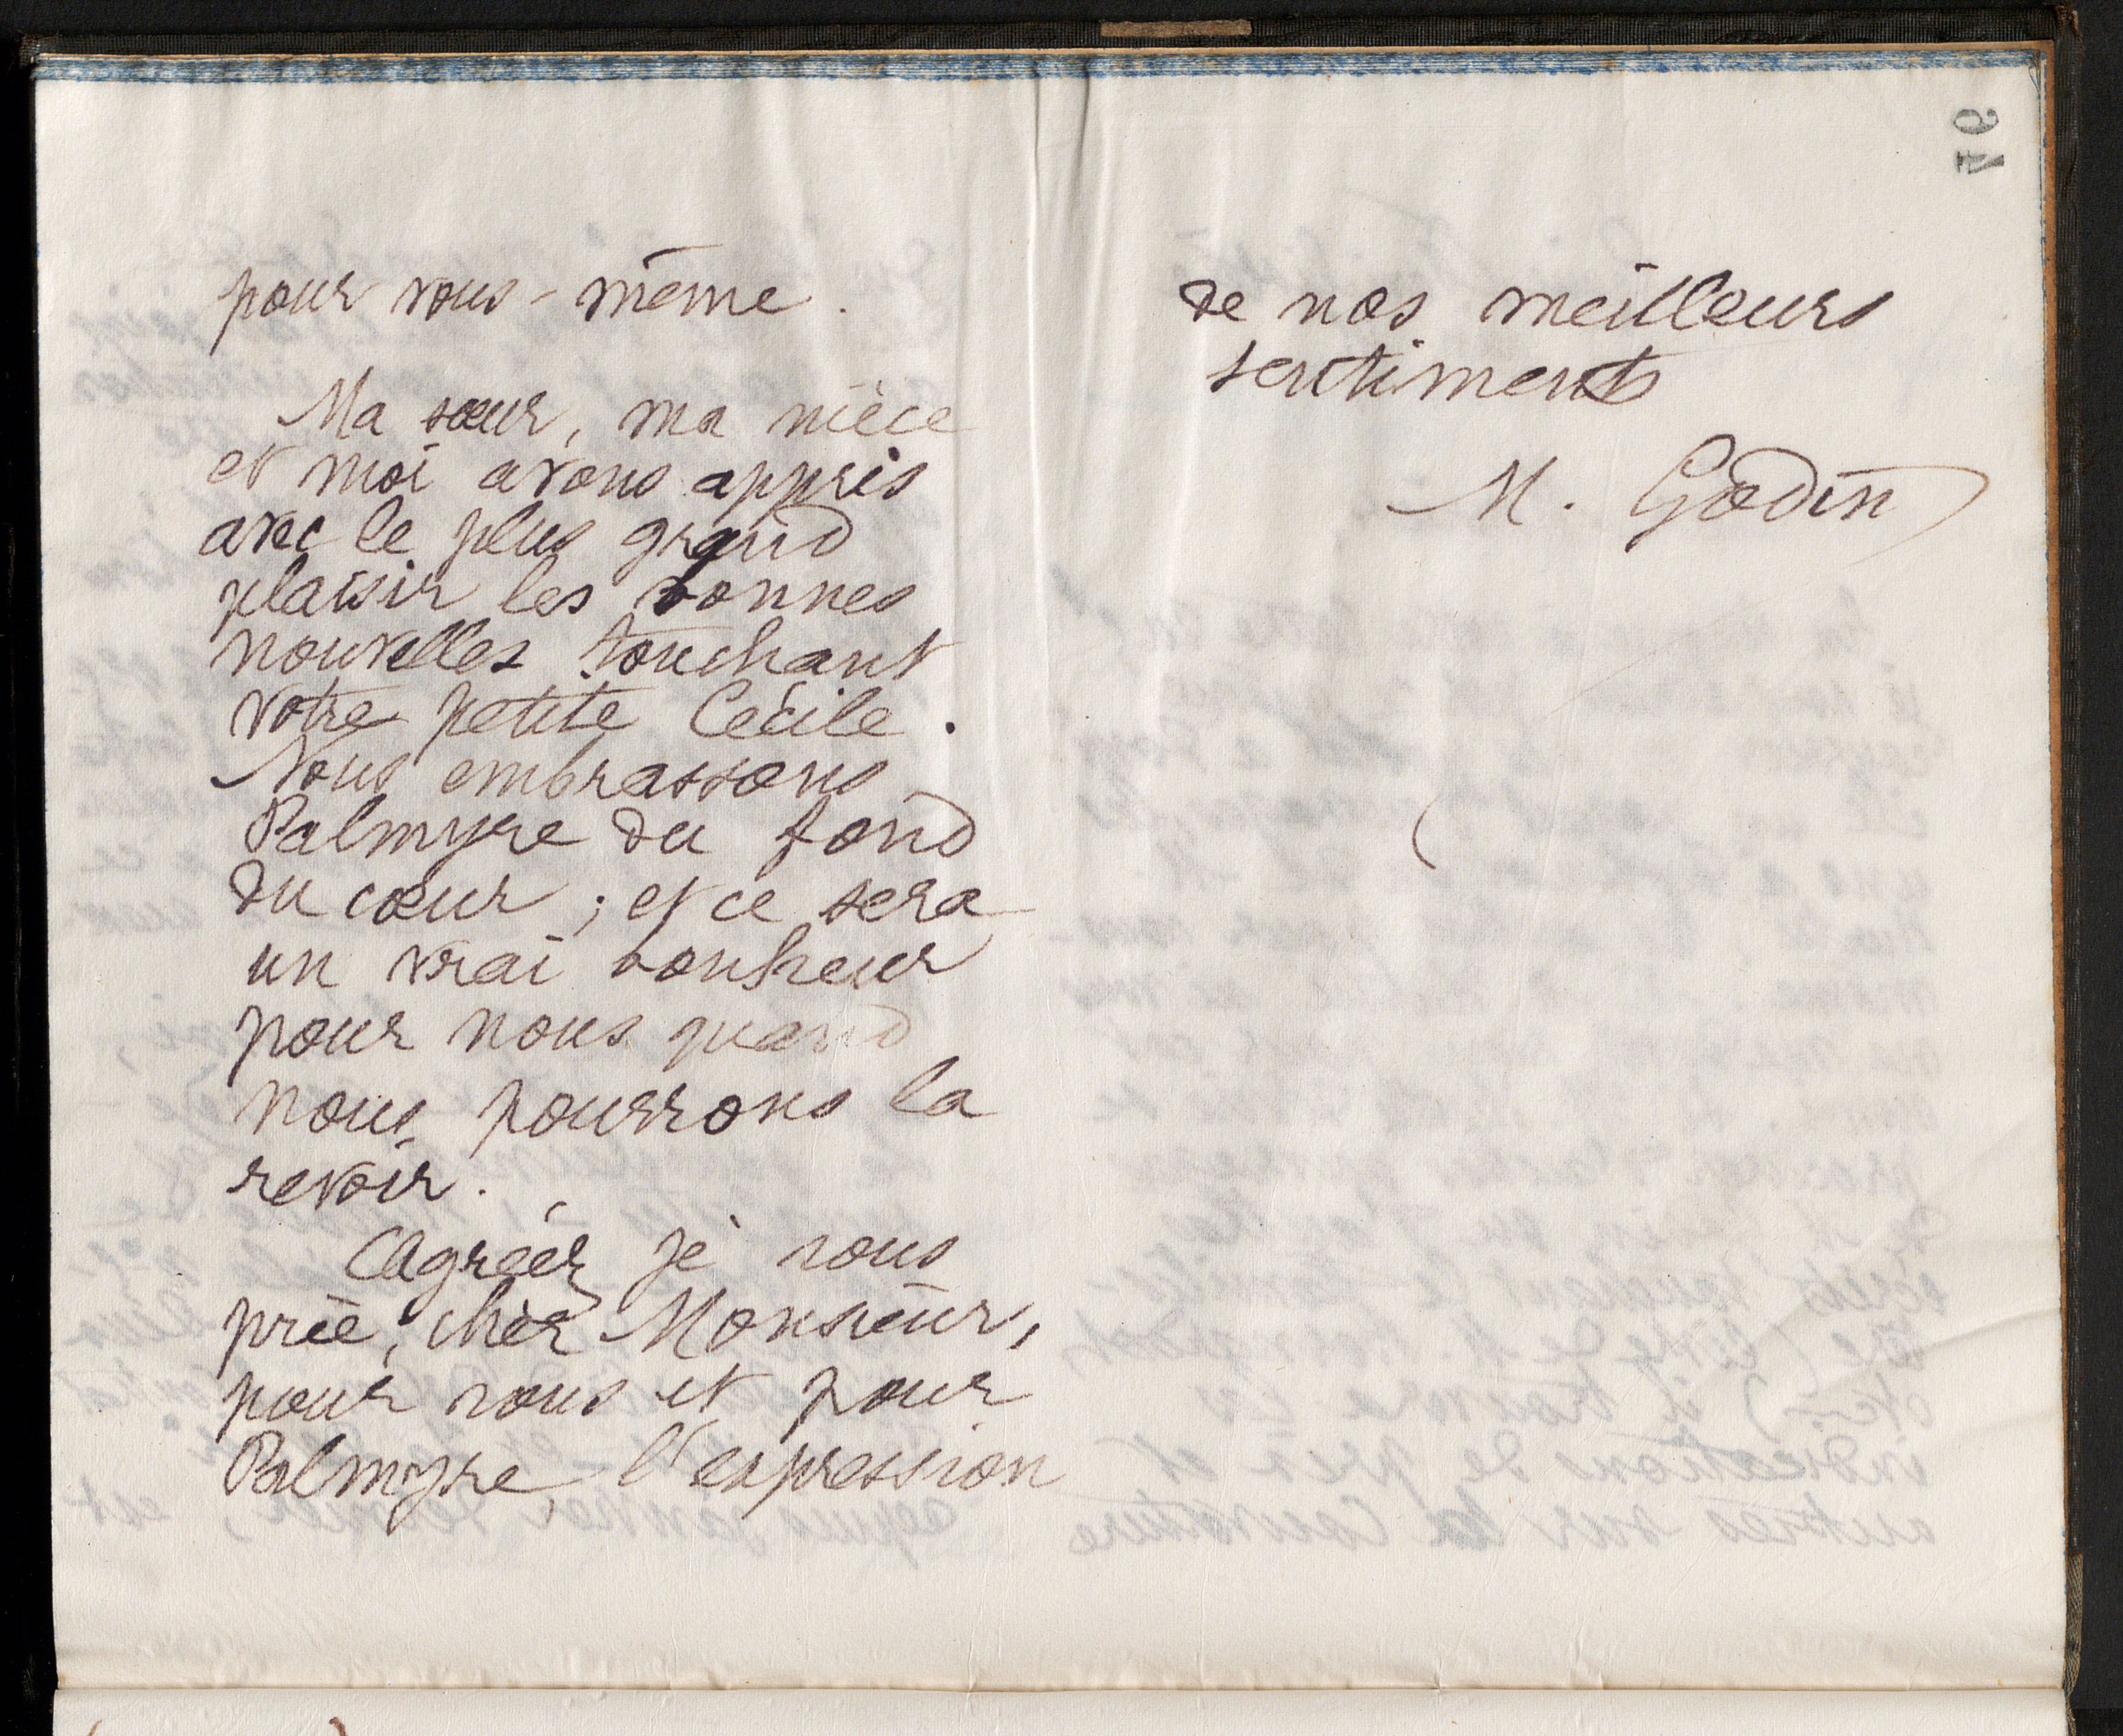 pour vous-même.
Ma sœur, ma nièce
et moi avons appris
avec le plus grand
plaisir les bonnes
nouvelles touchant
votre petite Cécile.
Nous embrassons
Palmyre du fond
du cœur ; et ce sera
un vrai bonheur
pour nous quand
nous pourrons la
revoir.
Agréez, je vous
prie, cher Monsieur,
pour vous et pour
Palmyre, l'expression
de nos meilleurs
sentiments
M. Godin
46